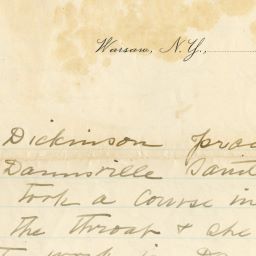 Warsaw, N.Y.,
Dickinson prac
Dannsville Sanit
took a course in
the throat & she